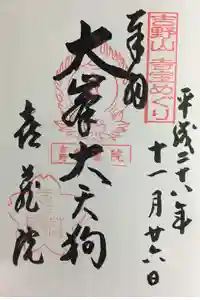 平成二十八年
十一月廿六日
吉野山 寺宝めぐり
奉拝
大峯大天狗
喜蔵院